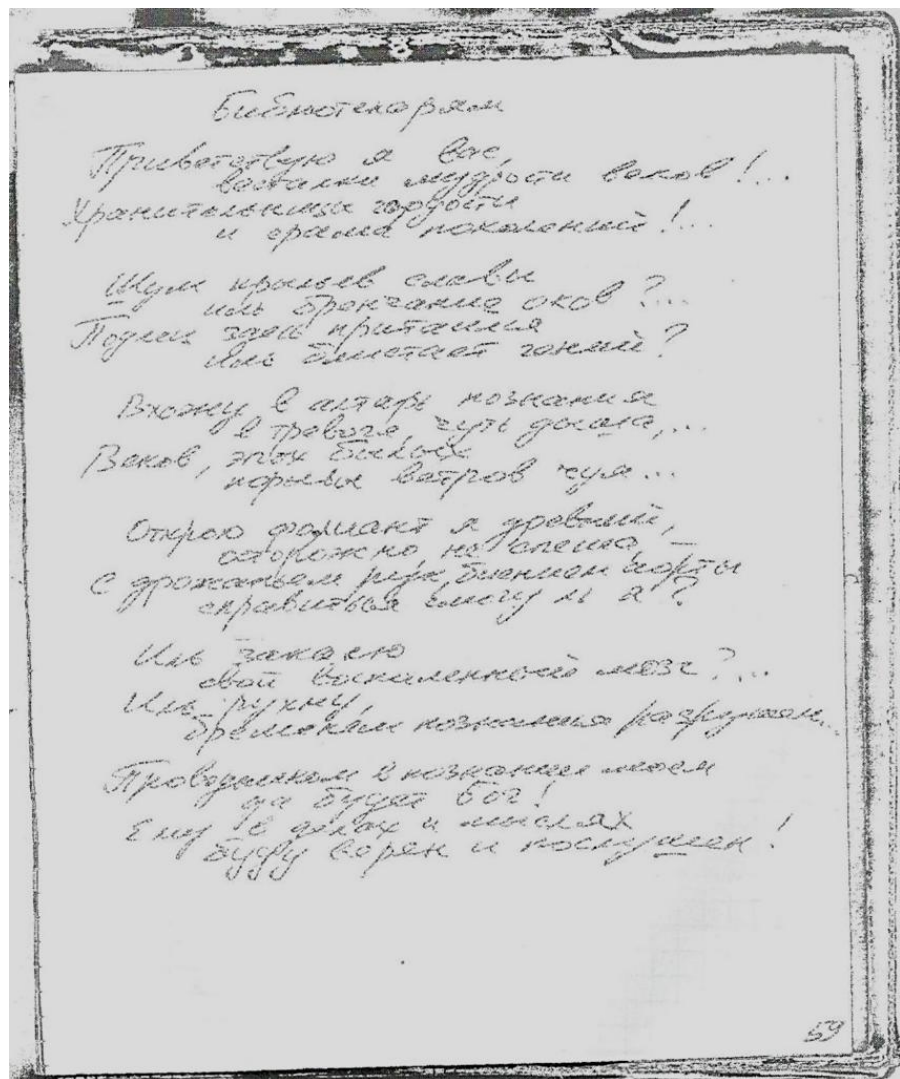 Библиотекарям
Приветствую я вас,
весталки мудрости веков!...
Хранительницы гордости
и срама поколений!...
Шум крыльев славы
иль бренчание оков?...
Подлец здесь притаился
иль блистает гений?
Вхожу в алтарь познания
в тревоге, чуть дыша,...
Веков, эпох былых
порывы ветров чуя...
Открою фолиант я древний,
осторожно, не спеша,
С дрожаньем рук, биением аорты
справиться смогу ль я?
Иль закалю
свой воспаленный мозг?...
Иль рухну,
бременем познания разрушен...
Проводником в познании моем
да будет Бог!
Ему в делах и мыслях
буду верен и послушен!
59